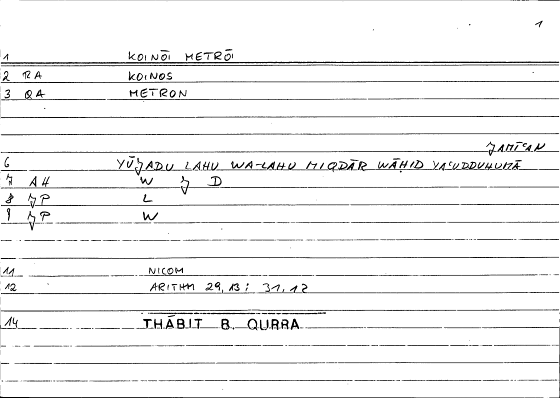 1
1 KOINŌI METRŌI
2 RA KOINOS
3 QA METRON
ǦAMĪʿAN
6 YŪǦADU LAHU WA-LAHU MIQDĀR WĀḤID YAʿUDDUHUMĀ
7 AH W Ǧ D
8 ǦP L
9 ǦP W
11 NICOM
12 ARITHM 29,13; 31,12
14 THĀBIT B. QURRA